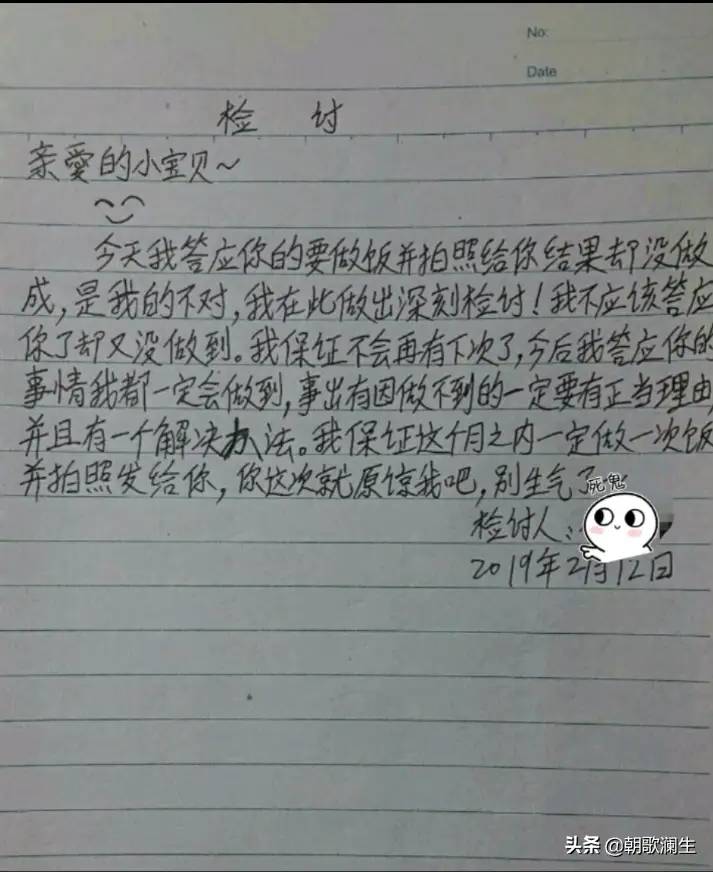 No:
Date
检 讨
亲愛的小宝贝~
今天我答应你的要做饭并拍照给你结果却没做
成,是我的不对,我在此做出深刻检讨!我不应该答应
你了却又没做到。我保证不会再有下次了,今后我答应你的
事情我都一定会做到,事出有因做不到的一定要有正当理由,
并且有一个解决办法。我保证这个月之内一定做一次饭
并拍照发给你,你这次就原谅我吧,别生气了
死鬼
检讨人:
2019年2月12日
头条 @朝歌澜生